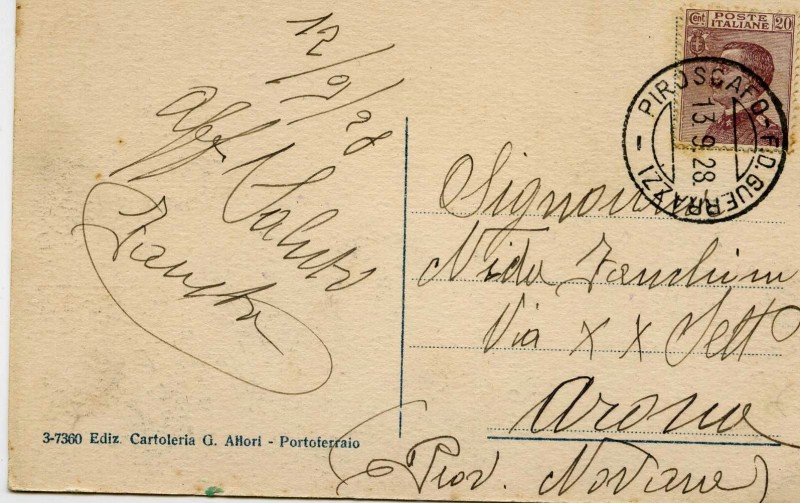 12/9/28
Aff. Saluti
Fausta
3-7360 Ediz. Cartoleria G. Allori - Portoferraio
Cent. POSTE ITALIANE 20
PIROSCAFO - F.D. GUERRAZZI -
13.9.28.
Signorina
Nida
Via XX Sett
Arona
(Prov. Novara)